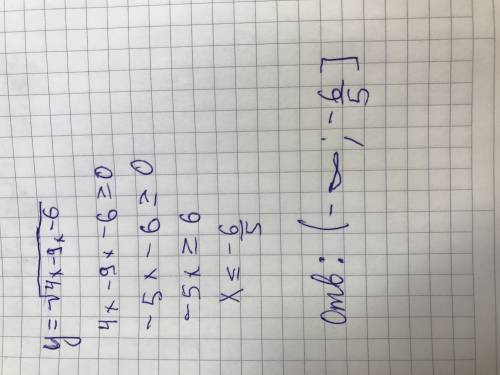 y = √4x-9x-6
4x - 9x - 6 ≥ 0
-5x - 6 ≥ 0
-5x ≥ 6
x ≤ -6/5
Отв: (-∞; -6/5]